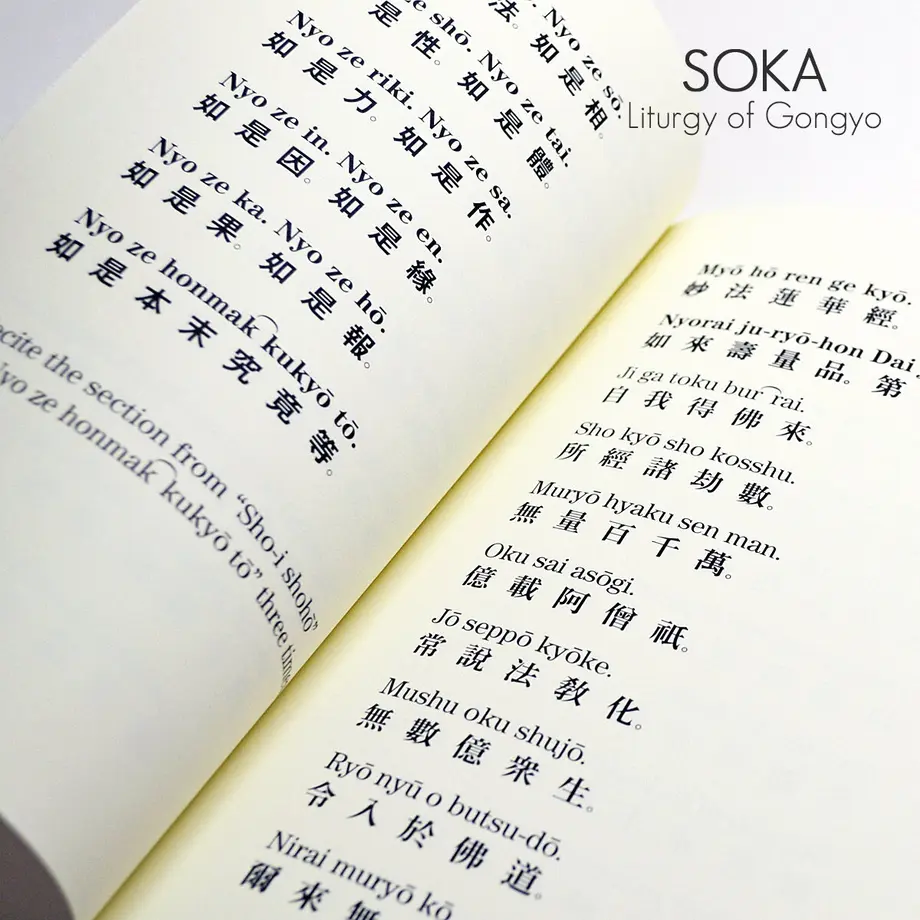 SOKA
Liturgy of Gongyo
Nyo ze sō.
法。如是相。
ze shō. Nyo ze tai.
是性。如是體。
Nyo ze riki. Nyo ze sa.
如是力。如是作。
Nyo ze in. Nyo ze en.
如是因。如是緣。
Nyo ze ka. Nyo ze hō.
如是果。如是報。
Nyo ze honmak kukyō tō.
如是本末究竟等。
recite the section from “Sho-i shohō”
Nyo ze honmak kukyō tō” three times
Myō hō ren ge kyō.
妙法蓮華經。
Nyorai ju-ryō-hon Dai
如來壽量品。第
Ji ga toku bur rai.
自我得佛來。
Sho kyō sho kosshu.
所經諸劫數。
Muryō hyaku sen man.
無量百千萬。
Oku sai asōgi.
億載阿僧祇。
Jō seppō kyōke.
常說法教化。
Mushu oku shujō.
無數億衆生。
Ryō nyū o butsu-dō.
令入於佛道。
Nirai muryō kō
爾來無